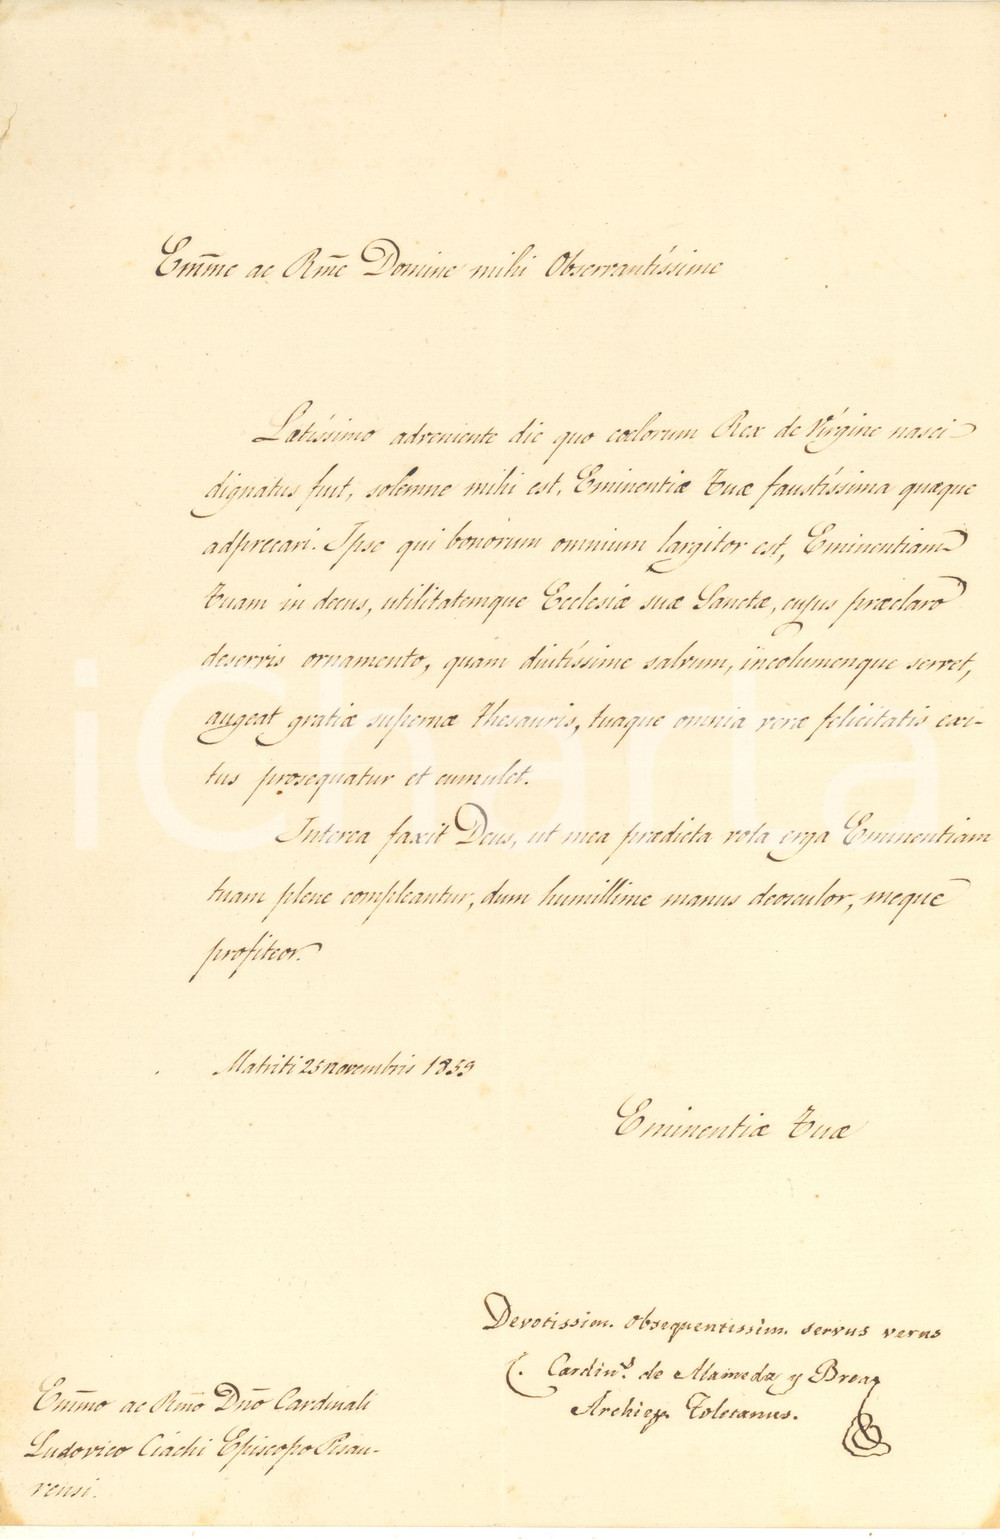 Em̅m̅e ac Rm̅e Domine mihi Observantissime
Latissimo adveniente die quo cœlorum Rex de Virgine nasci
dignatus fuit, solemne mihi est, Eminentiæ Tuæ faustissima quæque
adprecari. Ipse qui bonorum omnium largitor est, Eminentiam
Tuam in decus, utilitatemque Ecclesiæ suæ Sanctæ, cujus præclaro
deservis ornamento, quam diutissime salvum, incolumenque servet,
augeat gratiæ supernæ thesauris, tuaque omnia veræ felicitatis exi-
tus prosequatur et cumulet.
Interea faxit Deus, ut mea prædicta vota erga Eminentiam
tuam plene compleantur, dum humillime manus deosculor, meque
profiteor.
Matriti 25 novembris 1859
Eminentiæ Tuæ
Devotissim. obsequentissim. servus verus
C. Cardin.ˢ de Alameda y Brea
Archiep. Toletanus.
Em̅m̅o ac Rm̅o Dn̅o Cardinali
Ludovico Ciachi Episcopo Pisau-
rensi.
iCharta